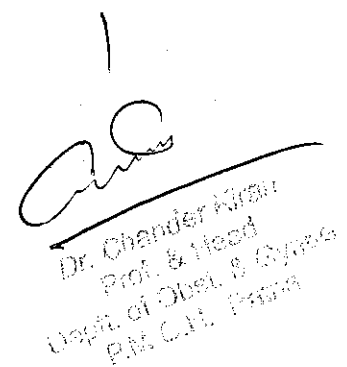 Dr. Chander Kiran
Prof. & Head
Deptt. of Obst. & Gynae
P.M.C.H. Patna